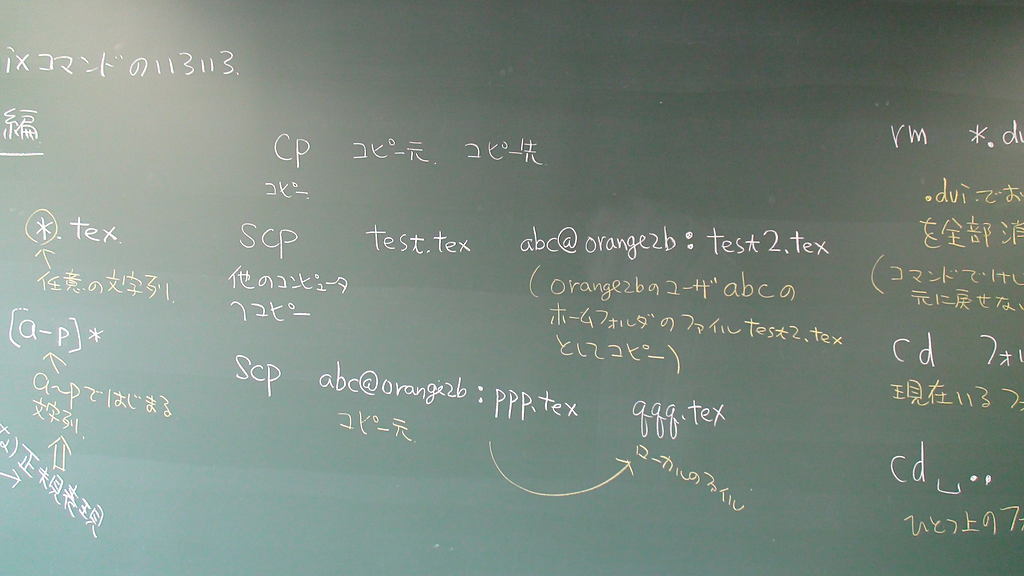 ixコマンドのいろいろ
編
*.tex
任意の文字列
[a-p]*
a~pではじまる
文字列
正規表現
cp コピー元 コピー先
コピー
scp test.tex abc@orange2b:test2.tex
他のコンピュータ
へコピー
(orange2bのユーザabcの
ホームフォルダのファイルtest2.tex
としてコピー)
scp abc@orange2b:ppp.tex qqq.tex
コピー元
ローカルのファイル
rm *.dv
.dviでお
を全部消
(コマンドでけし
元に戻せない
cd フォル
現在いるフ
cd␣..
ひとつ上のフォ